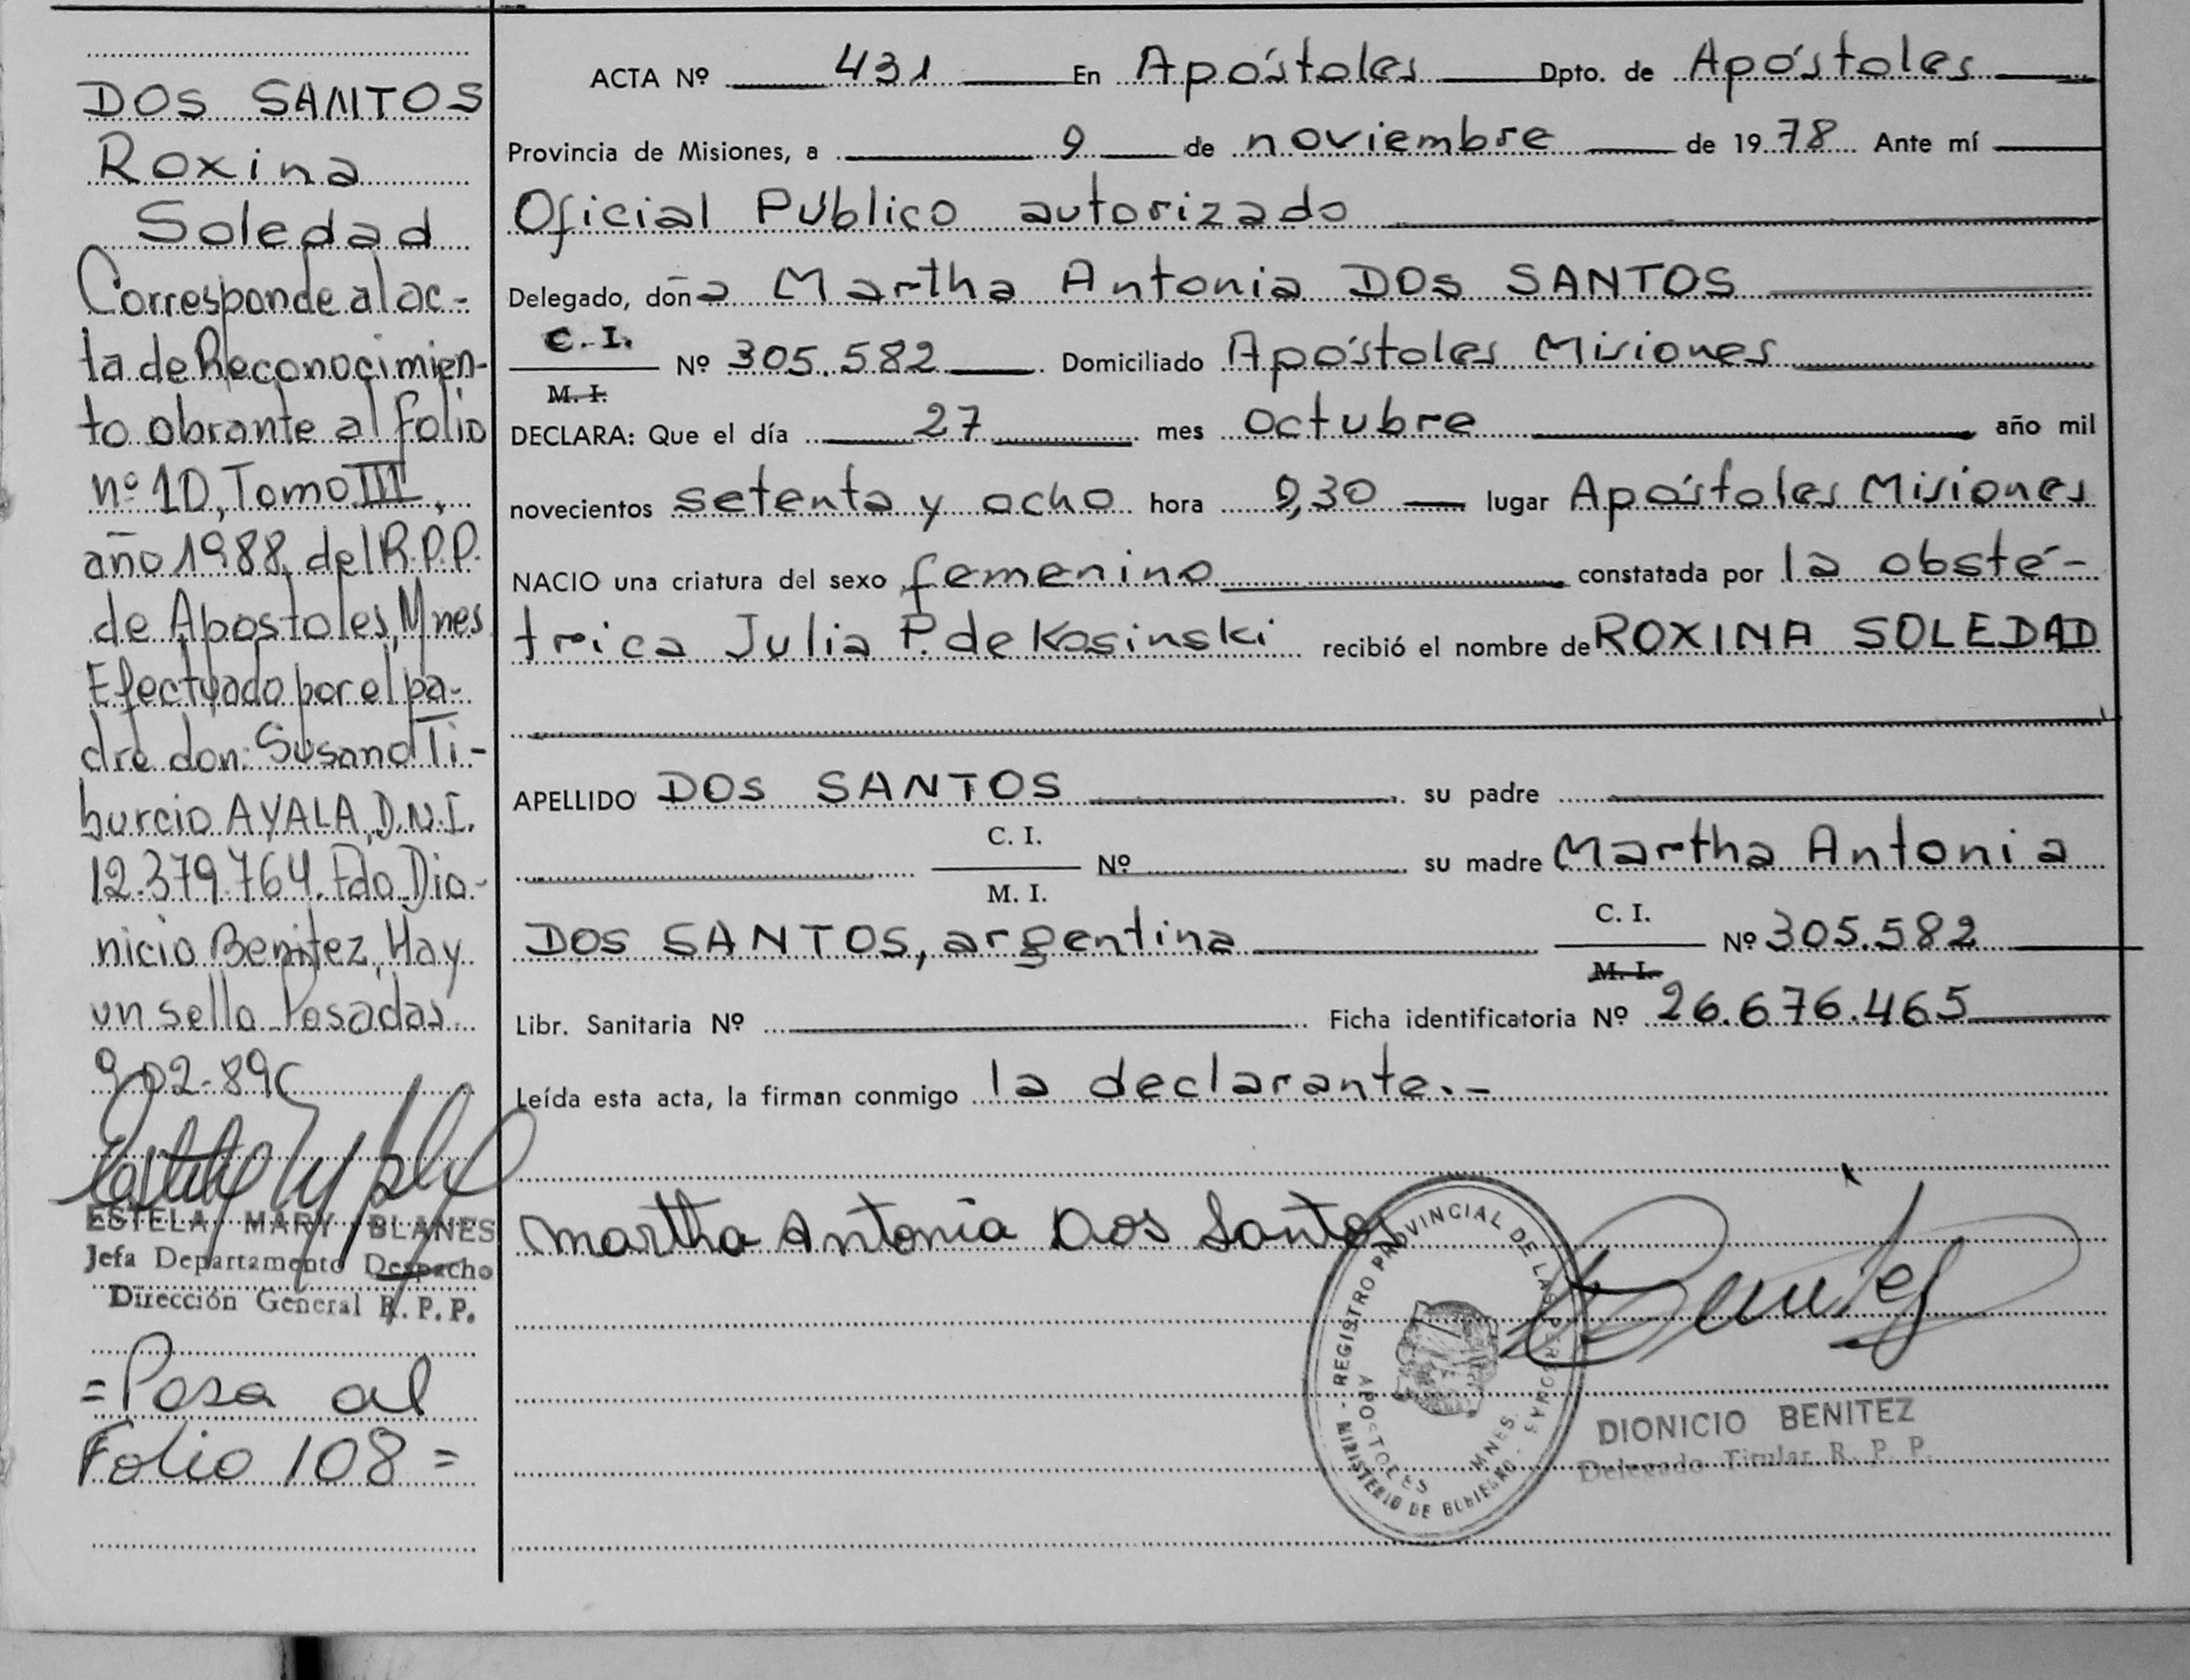 DOS SANTOS
Roxina
Soledad
Corresponde al ac-
ta de Reconocimien-
to obrante al folio
nº 10, Tomo III,
año 1988, del R.P.P.
de Apostoles, Mnes
Efectuado por el pa-
dre don: Susano Ti-
burcio AYALA, D.N.I.
12.379.764. Fdo Dio-
nicio Benitez, Hay
un sello Posadas
9-02-89
ESTELA MARY BLANES
Jefa Departamento Despacho
Dirección General R. P. P.
=Pasa al
Folio 108=
ACTA Nº 431 En Apóstoles Dpto. de Apóstoles
Provincia de Misiones, a 9 de noviembre de 1978 Ante mí
Oficial Público autorizado
Delegado, doña Martha Antonia DOS SANTOS
C. I.
M. I.
Nº 305.582 Domiciliado Apóstoles Misiones
DECLARA: Que el día 27 mes octubre año mil
novecientos setenta y ocho hora 9,30 lugar Apóstoles Misiones
NACIO una criatura del sexo femenino constatada por la obsté-
trica Julia P. de Kosinski recibió el nombre de ROXINA SOLEDAD
APELLIDO DOS SANTOS su padre
C. I.
M. I.
Nº su madre Martha Antonia
DOS SANTOS, argentina
C. I.
M. I.
Nº 305.582
Libr. Sanitaria Nº Ficha identificatoria Nº 26.676.465
Leída esta acta, la firman conmigo la declarante.-
Martha Antonia Dos Santos
REGISTRO PROVINCIAL DE LAS PERSONAS
MINISTERIO DE GOBIERNO
APOSTOLES MNES.
Benitez
DIONICIO BENITEZ
Delegado Titular R. P. P.